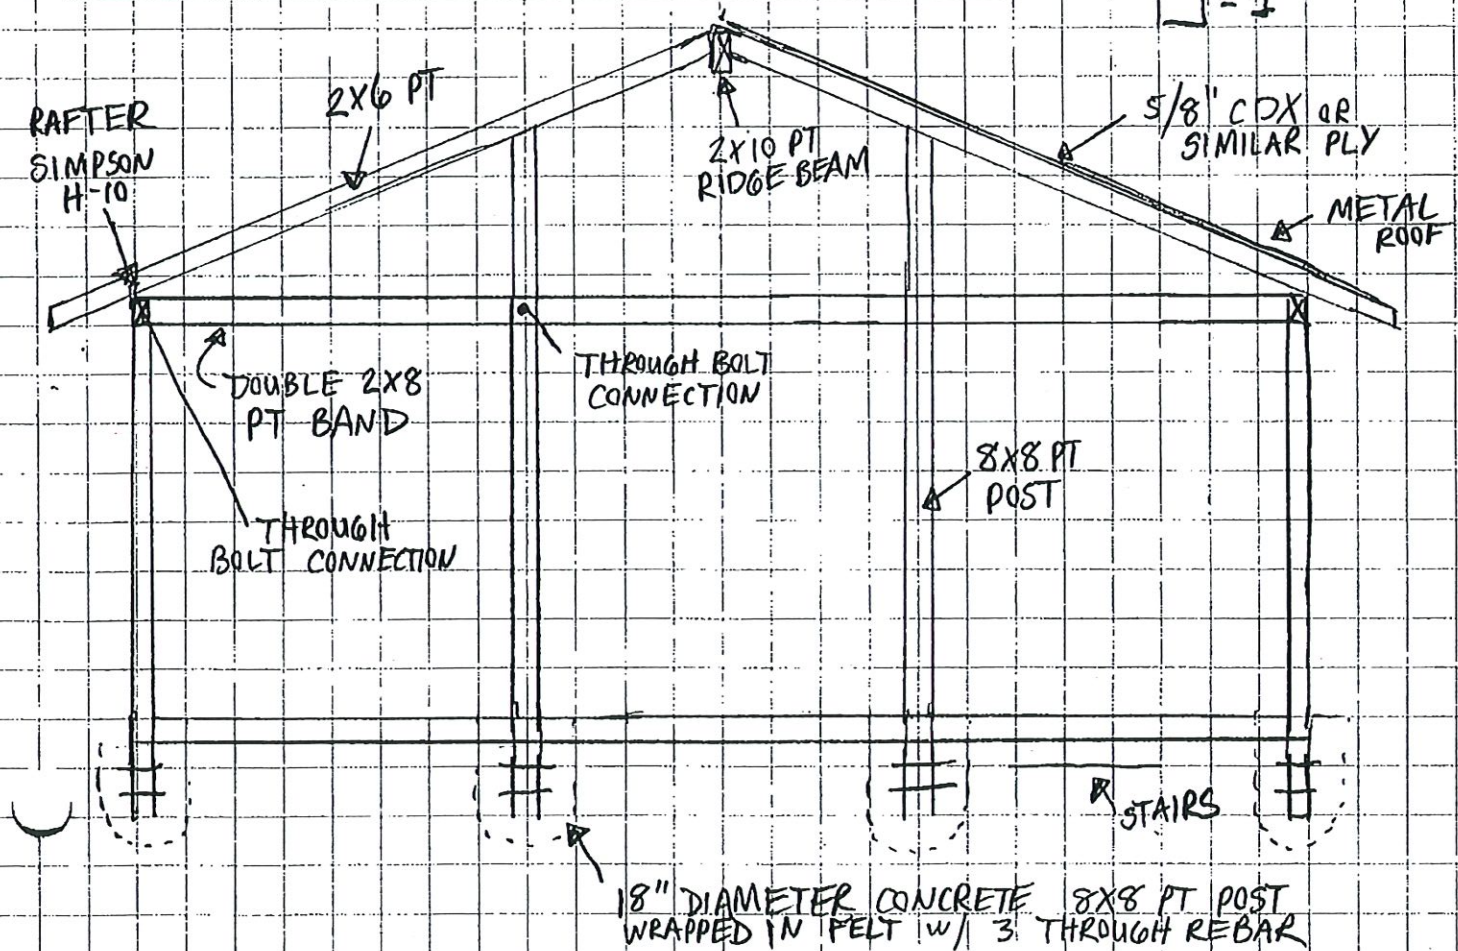 - 1
RAFTER
SIMPSON
H-10
2X6 PT
2X10 PT
RIDGE BEAM
5/8" CDX OR
SIMILAR PLY
METAL
ROOF
DOUBLE 2X8
PT BAND
THROUGH BOLT
CONNECTION
THROUGH
BOLT CONNECTION
8X8 PT
POST
STAIRS
18" DIAMETER CONCRETE 8X8 PT POST
WRAPPED IN FELT W/ 3 THROUGH REBAR